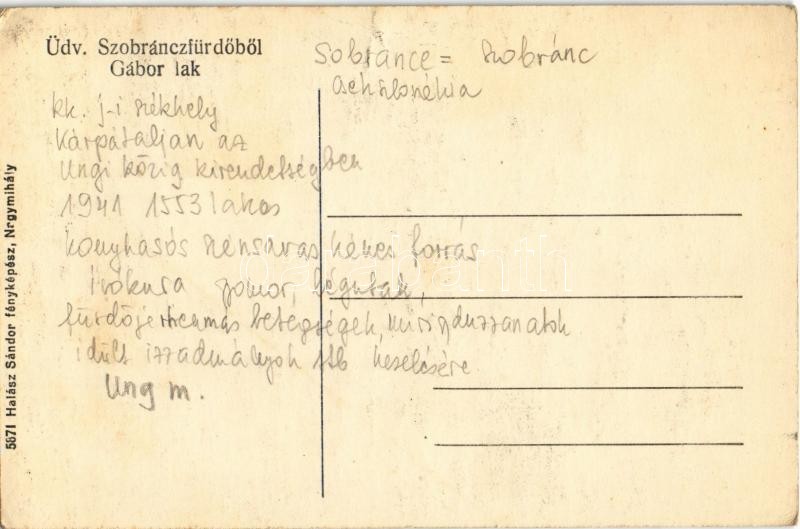 Üdv. Szobránczfürdőből
Gábor lak
Sobrance = Szobránc
kk. j-i székhely
Kárpátaljan az
Ungi közig kirendeltségben
1941 1553 lakos
konyhasós szénsavas kénes forrás
ivókura gyomor, légutak,
fürdője rheumás betegségek, mirigduzzanatok
idült izzadmányok stb kezelésére
Ung m.
5871 Halász Sándor fényképész, Nrgymihály
darabanth